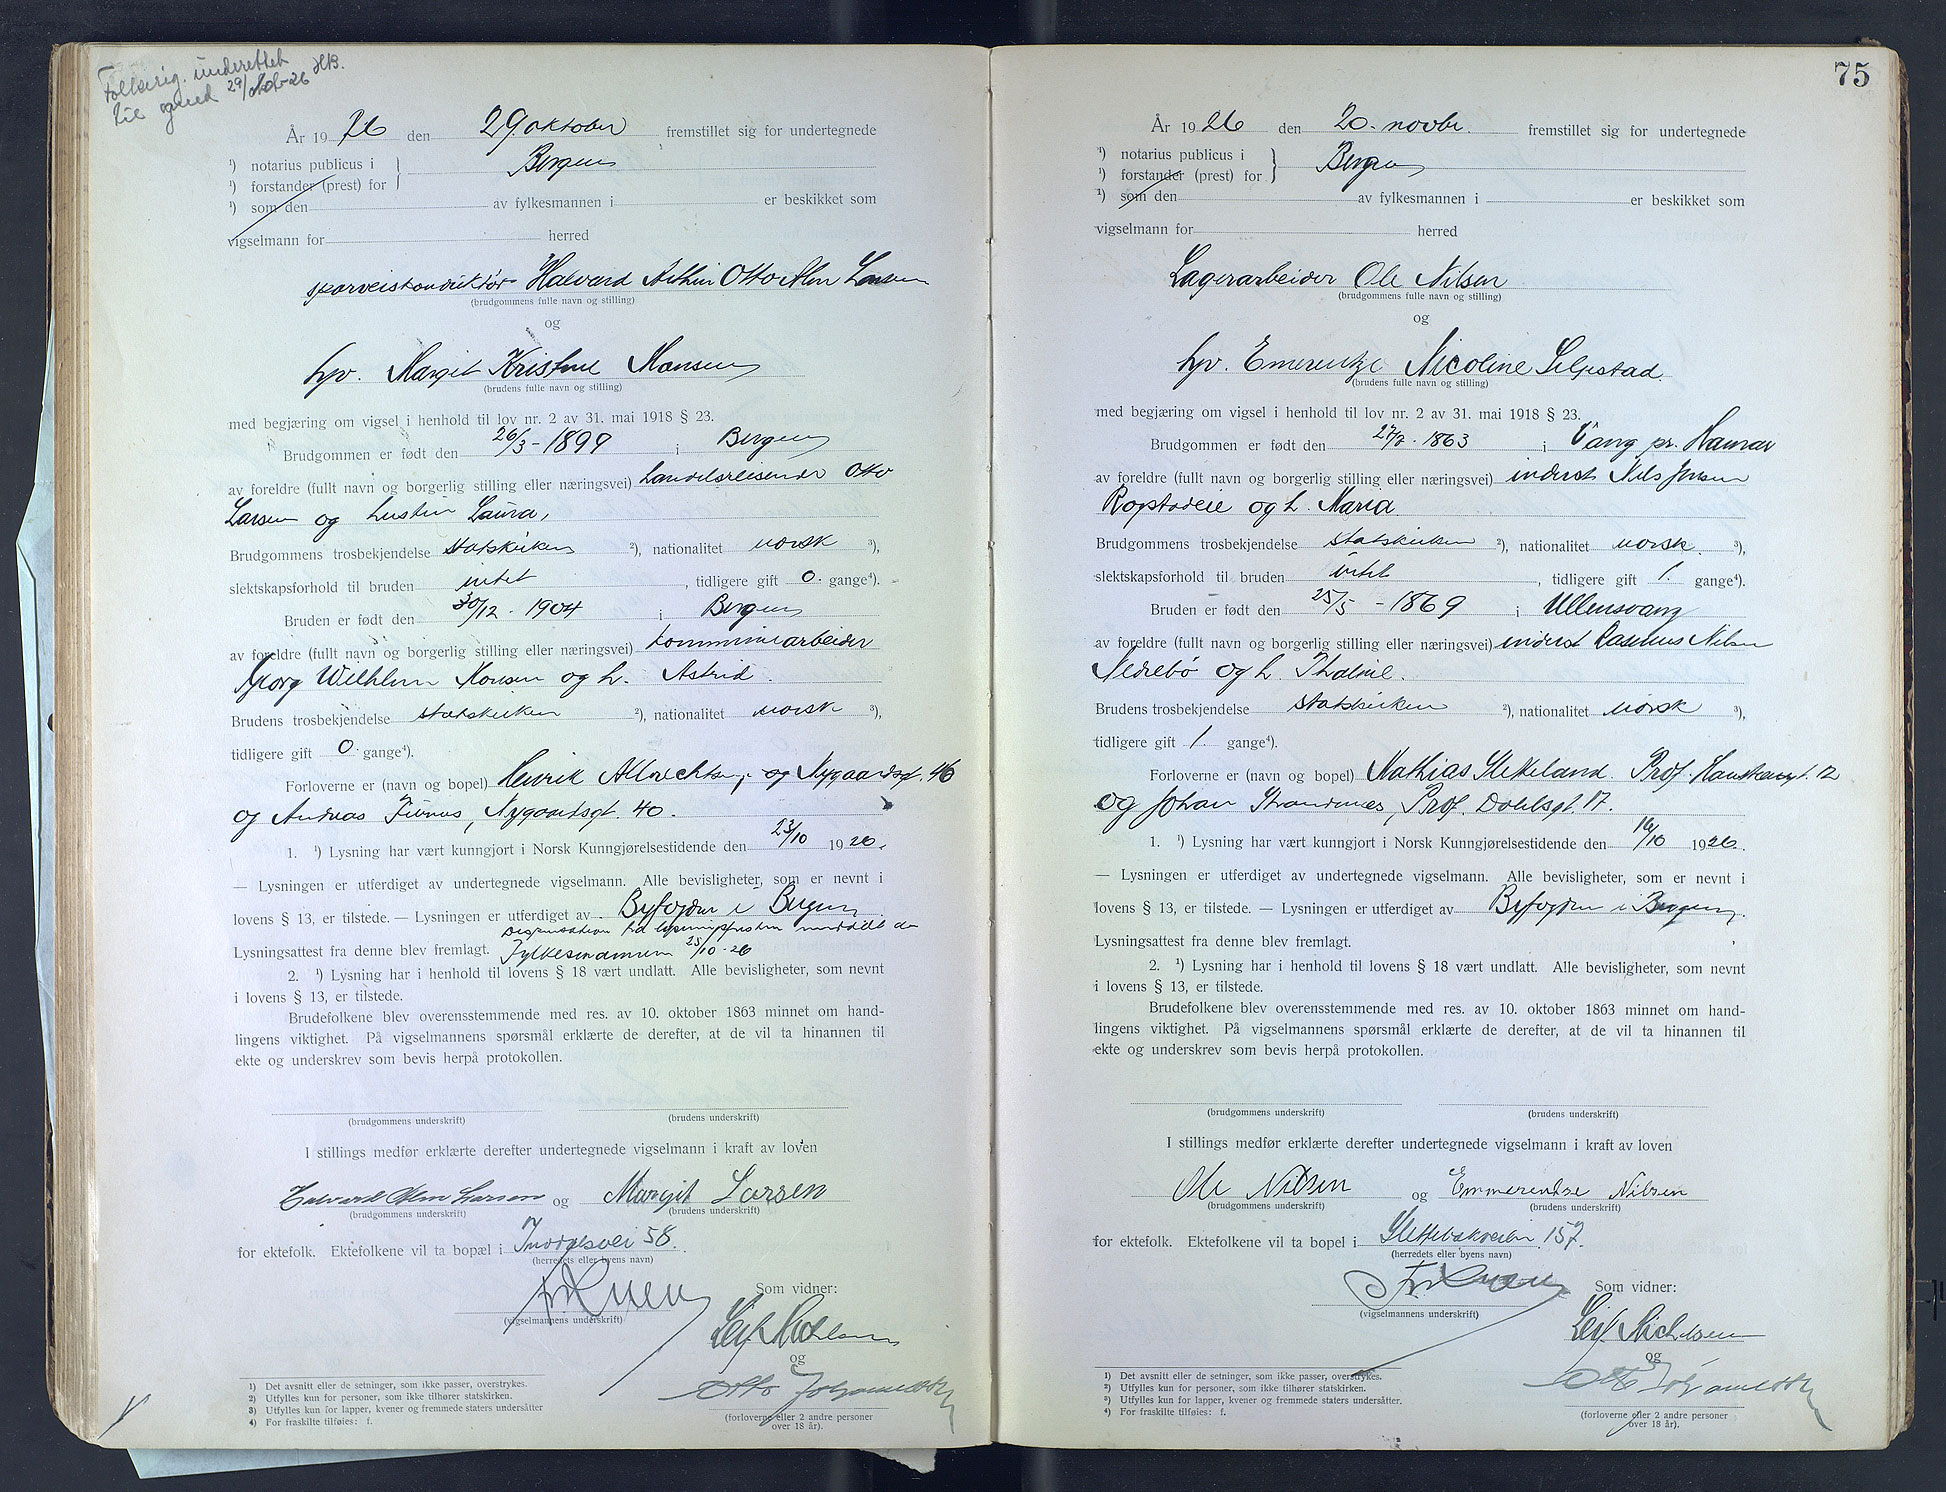 Folkerig. underettet
til og med 29/Okt-26 HB.
År 1926 den 29. oktober fremstillet sig for undertegnede
¹) notarius publicus i } Bergen
¹) forstander (prest) for
¹) som den av fylkesmannen i er beskikket som
vigselmann for herred
sporveiskonduktør Halvard Arthur Otto Alm Larsen
(brudgommens fulle navn og stilling)
og
hpv. Margit Kristine Monsen
(brudens fulle navn og stilling)
med begjæring om vigsel i henhold til lov nr. 2 av 31. mai 1918 § 23.
Brudgommen er født den 26/3-1899 i Bergen
av foreldre (fullt navn og borgerlig stilling eller næringsvei) handelsreisende Otto
Larsen og hustru Laura,
Brudgommens trosbekjendelse statskirken ²), nationalitet norsk ³),
slektskapsforhold til bruden intet, tidligere gift 0. gange⁴).
Bruden er født den 30/12 - 1904 i Bergen
av foreldre (fullt navn og borgerlig stilling eller næringsvei) kommunearbeider
Georg Wilhelm Monsen og h. Astrid.
Brudens trosbekjendelse statskirken ²), nationalitet norsk ³),
tidligere gift 0. gange⁴).
Forloverne er (navn og bopel) Henrik Albrechtsen, og Nygaardsgt. 46
og Andreas Nygaardsgt. 40.
1. ¹) Lysning har vært kunngjort i Norsk Kunngjørelsestidende den 23/10 1926.
— Lysningen er utferdiget av undertegnede vigselmann. Alle bevisligheter, som er nevnt i
lovens § 13, er tilstede. — Lysningen er utferdiget av Byfogden i Bergen
Dispensation fra lysningsfristen meddelt av
Lysningsattest fra denne blev fremlagt. Fylkesmannen 25/10-26
2. ¹) Lysning har i henhold til lovens § 18 vært undlatt. Alle bevisligheter, som nevnt
i lovens § 13, er tilstede.
Brudefolkene blev overensstemmende med res. av 10. oktober 1863 minnet om hand-
lingens viktighet. På vigselmannens spørsmål erklærte de derefter, at de vil ta hinannen til
ekte og underskrev som bevis herpå protokollen.
(brudgommens underskrift) (brudens underskrift)
I stillings medfør erklærte derefter undertegnede vigselmann i kraft av loven
Halvard Alm Larsen og Margit Larsen
(brudgommens underskrift) (brudens underskrift)
for ektefolk. Ektefolkene vil ta bopæl i 58.
(herredets eller byens navn)
Som vidner:
(vigselmannens underskrift)
Leif Michelsen
og
Otto Johannessen
(forloverne eller 2 andre personer
over 18 år).
1) Det avsnitt eller de setninger, som ikke passer, overstrykes.
2) Utfylles kun for personer, som ikke tilhører statskirken.
3) Utfylles kun for lapper, kvener og fremmede staters undersåtter
4) For fraskilte tilføies: f.
75
År 1926 den 20. novbr. fremstillet sig for undertegnede
¹) notarius publicus i } Bergen
¹) forstander (prest) for
¹) som den av fylkesmannen i er beskikket som
vigselmann for herred
Lagerarbeider Ole Nilsen
(brudgommens fulle navn og stilling)
og
hpv. Emerentze Nicoline Seljestad.
(brudens fulle navn og stilling)
med begjæring om vigsel i henhold til lov nr. 2 av 31. mai 1918 § 23.
Brudgommen er født den 27/7-1863 i Vang pr. Hamar
av foreldre (fullt navn og borgerlig stilling eller næringsvei) inderst Nils Jensen
Ropstadeie og h. Maria.
Brudgommens trosbekjendelse statskirken ²), nationalitet norsk. ³),
slektskapsforhold til bruden intet, tidligere gift 1. gange⁴).
Bruden er født den 25/5 - 1869 i Ullensvang
av foreldre (fullt navn og borgerlig stilling eller næringsvei) inderst Rasmus Nilsen
Nedrebø og h. Thaline.
Brudens trosbekjendelse statskirken ²), nationalitet norsk ³),
tidligere gift 1. gange⁴).
Forloverne er (navn og bopel) Mathias Slekeland. Prof. Hansteensgt. 12
og Johan Strandenæs, Prof. Dahlsgt. 17.
1. ¹) Lysning har vært kunngjort i Norsk Kunngjørelsestidende den 16/10 1926.
— Lysningen er utferdiget av undertegnede vigselmann. Alle bevisligheter, som er nevnt i
lovens § 13, er tilstede. — Lysningen er utferdiget av Byfogden i Bergen.
Lysningsattest fra denne blev fremlagt.
2. ¹) Lysning har i henhold til lovens § 18 vært undlatt. Alle bevisligheter, som nevnt
i lovens § 13, er tilstede.
Brudefolkene blev overensstemmende med res. av 10. oktober 1863 minnet om hand-
lingens viktighet. På vigselmannens spørsmål erklærte de derefter, at de vil ta hinannen til
ekte og underskrev som bevis herpå protokollen.
(brudgommens underskrift) (brudens underskrift)
I stillings medfør erklærte derefter undertegnede vigselmann i kraft av loven
Ole Nilsen og Emmerendse Nilsen
(brudgommens underskrift) (brudens underskrift)
for ektefolk. Ektefolkene vil ta bopel i Slettebakveien 157.
(herredets eller byens navn)
Som vidner:
(vigselmannens underskrift)
Leif Michelsen
og
Otto Johannessen
(forloverne eller 2 andre personer
over 18 år).
¹) Det avsnitt eller de setninger, som ikke passer, overstrykes.
²) Utfylles kun for personer, som ikke tilhører statskirken.
³) Utfylles kun for lapper, kvener og fremmede staters undersåtter.
⁴) For fraskilte tilføies: f.